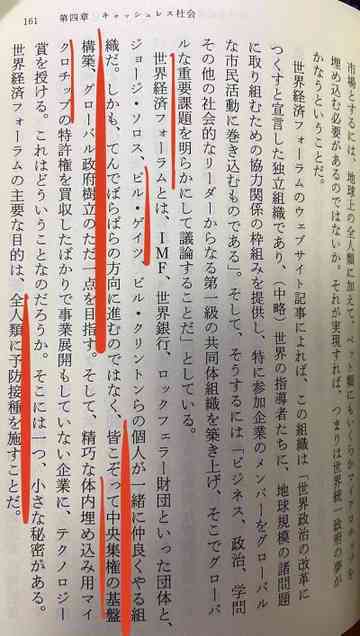 161 第四章 キャッシュレス社会
市場とするには、地球上の全人類に加えて、ペット類にも
埋め込む必要があるのではないか。それが実現すれば、つまりは世界統一政府の夢が
かなうということだ。
世界経済フォーラムのウェブサイト記事によれば、この組織は「世界政治の改革に
つくすと宣言した独立組織であり、(中略)世界の指導者たちに、地球規模の諸問題
に取り組むための協力関係の枠組みを提供し、特に参加企業のメンバーをグローバル
な市民活動に巻き込むものである」。そして、そうするには「ビジネス、政治、学問
その他の社会的なリーダーからなる第一級の共同体組織を築き上げ、そこでグローバ
ルな重要課題を明らかにして議論することだ」としている。
世界経済フォーラムとは、IMF、世界銀行、ロックフェラー財団といった団体と、
ジョージ・ソロス、ビル・ゲイツ、ビル・クリントンらの個人が一緒に仲良くやる組
織だ。しかも、てんでばらばらの方向に進むのではなく、皆こぞって中央集権の基盤
構築、グローバル政府樹立のただ一点を目指す。そして、精巧な体内埋め込み用マイ
クロチップの特許権を買収したばかりで事業展開もしていない企業に、テクノロジー
賞を授ける。これはどういうことなのだろうか。そこには一つ、小さな秘密がある。
世界経済フォーラムの主要な目的は、全人類に予防接種を施すことだ。